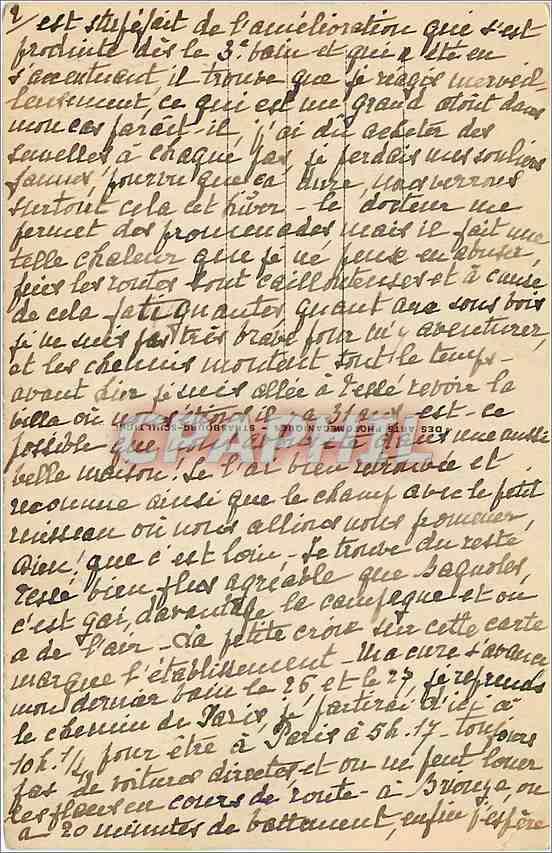 2/ est stupéfait de l'amélioration qui s'est
produite dès le 3e bain et qui a été en
s'accentuant, il trouve que je réagis merveil-
leusement, ce qui est un grand atout dans
mon cas paraît-il, j'ai dû acheter des
semelles à chaque pas, je perdais mes souliers
jaunes, pourvu que ça dure, nous verrons
surtout cela cet hiver - le docteur me
permet des promenades mais il fait une
telle chaleur que je ne peux en abuser,
puis les routes sont caillouteuses et à cause
de cela fatiguantes quant aux sous bois
je ne suis pas très brave pour m'y aventurer,
et les chemins montent tout le temps -
avant hier je suis allée à Tessé revoir la
villa où nous étions il y a 31 ans, est-ce
possible que nous dans une aussi
belle maison. Je l'ai bien retrouvée et
reconnue ainsi que le champ avec le petit
ruisseau où nous allions nous promener,
Dieu! que c'est loin - Je trouve du reste
Tessé bien plus agréable que Bagnoles,
c'est gai, davantage la campagne et on
a de l'air - La petite croix sur cette carte
marque l'établissement - Ma cure s'avance
mon dernier bain le 26 et le 27 je reprends
le chemin de Paris, je partirai d'ici à
10h. 1/4 pour être à Paris à 5h.17 - toujours
pas de voitures directes, et on ne peut louer
les places en cours de route - à Briouze, on
a 20 minutes de battement, enfin j'espère
DES ARTS PHOTOMÉCANIQUES - STRASBOURG-SCHILTIGH.
CPAPHIL